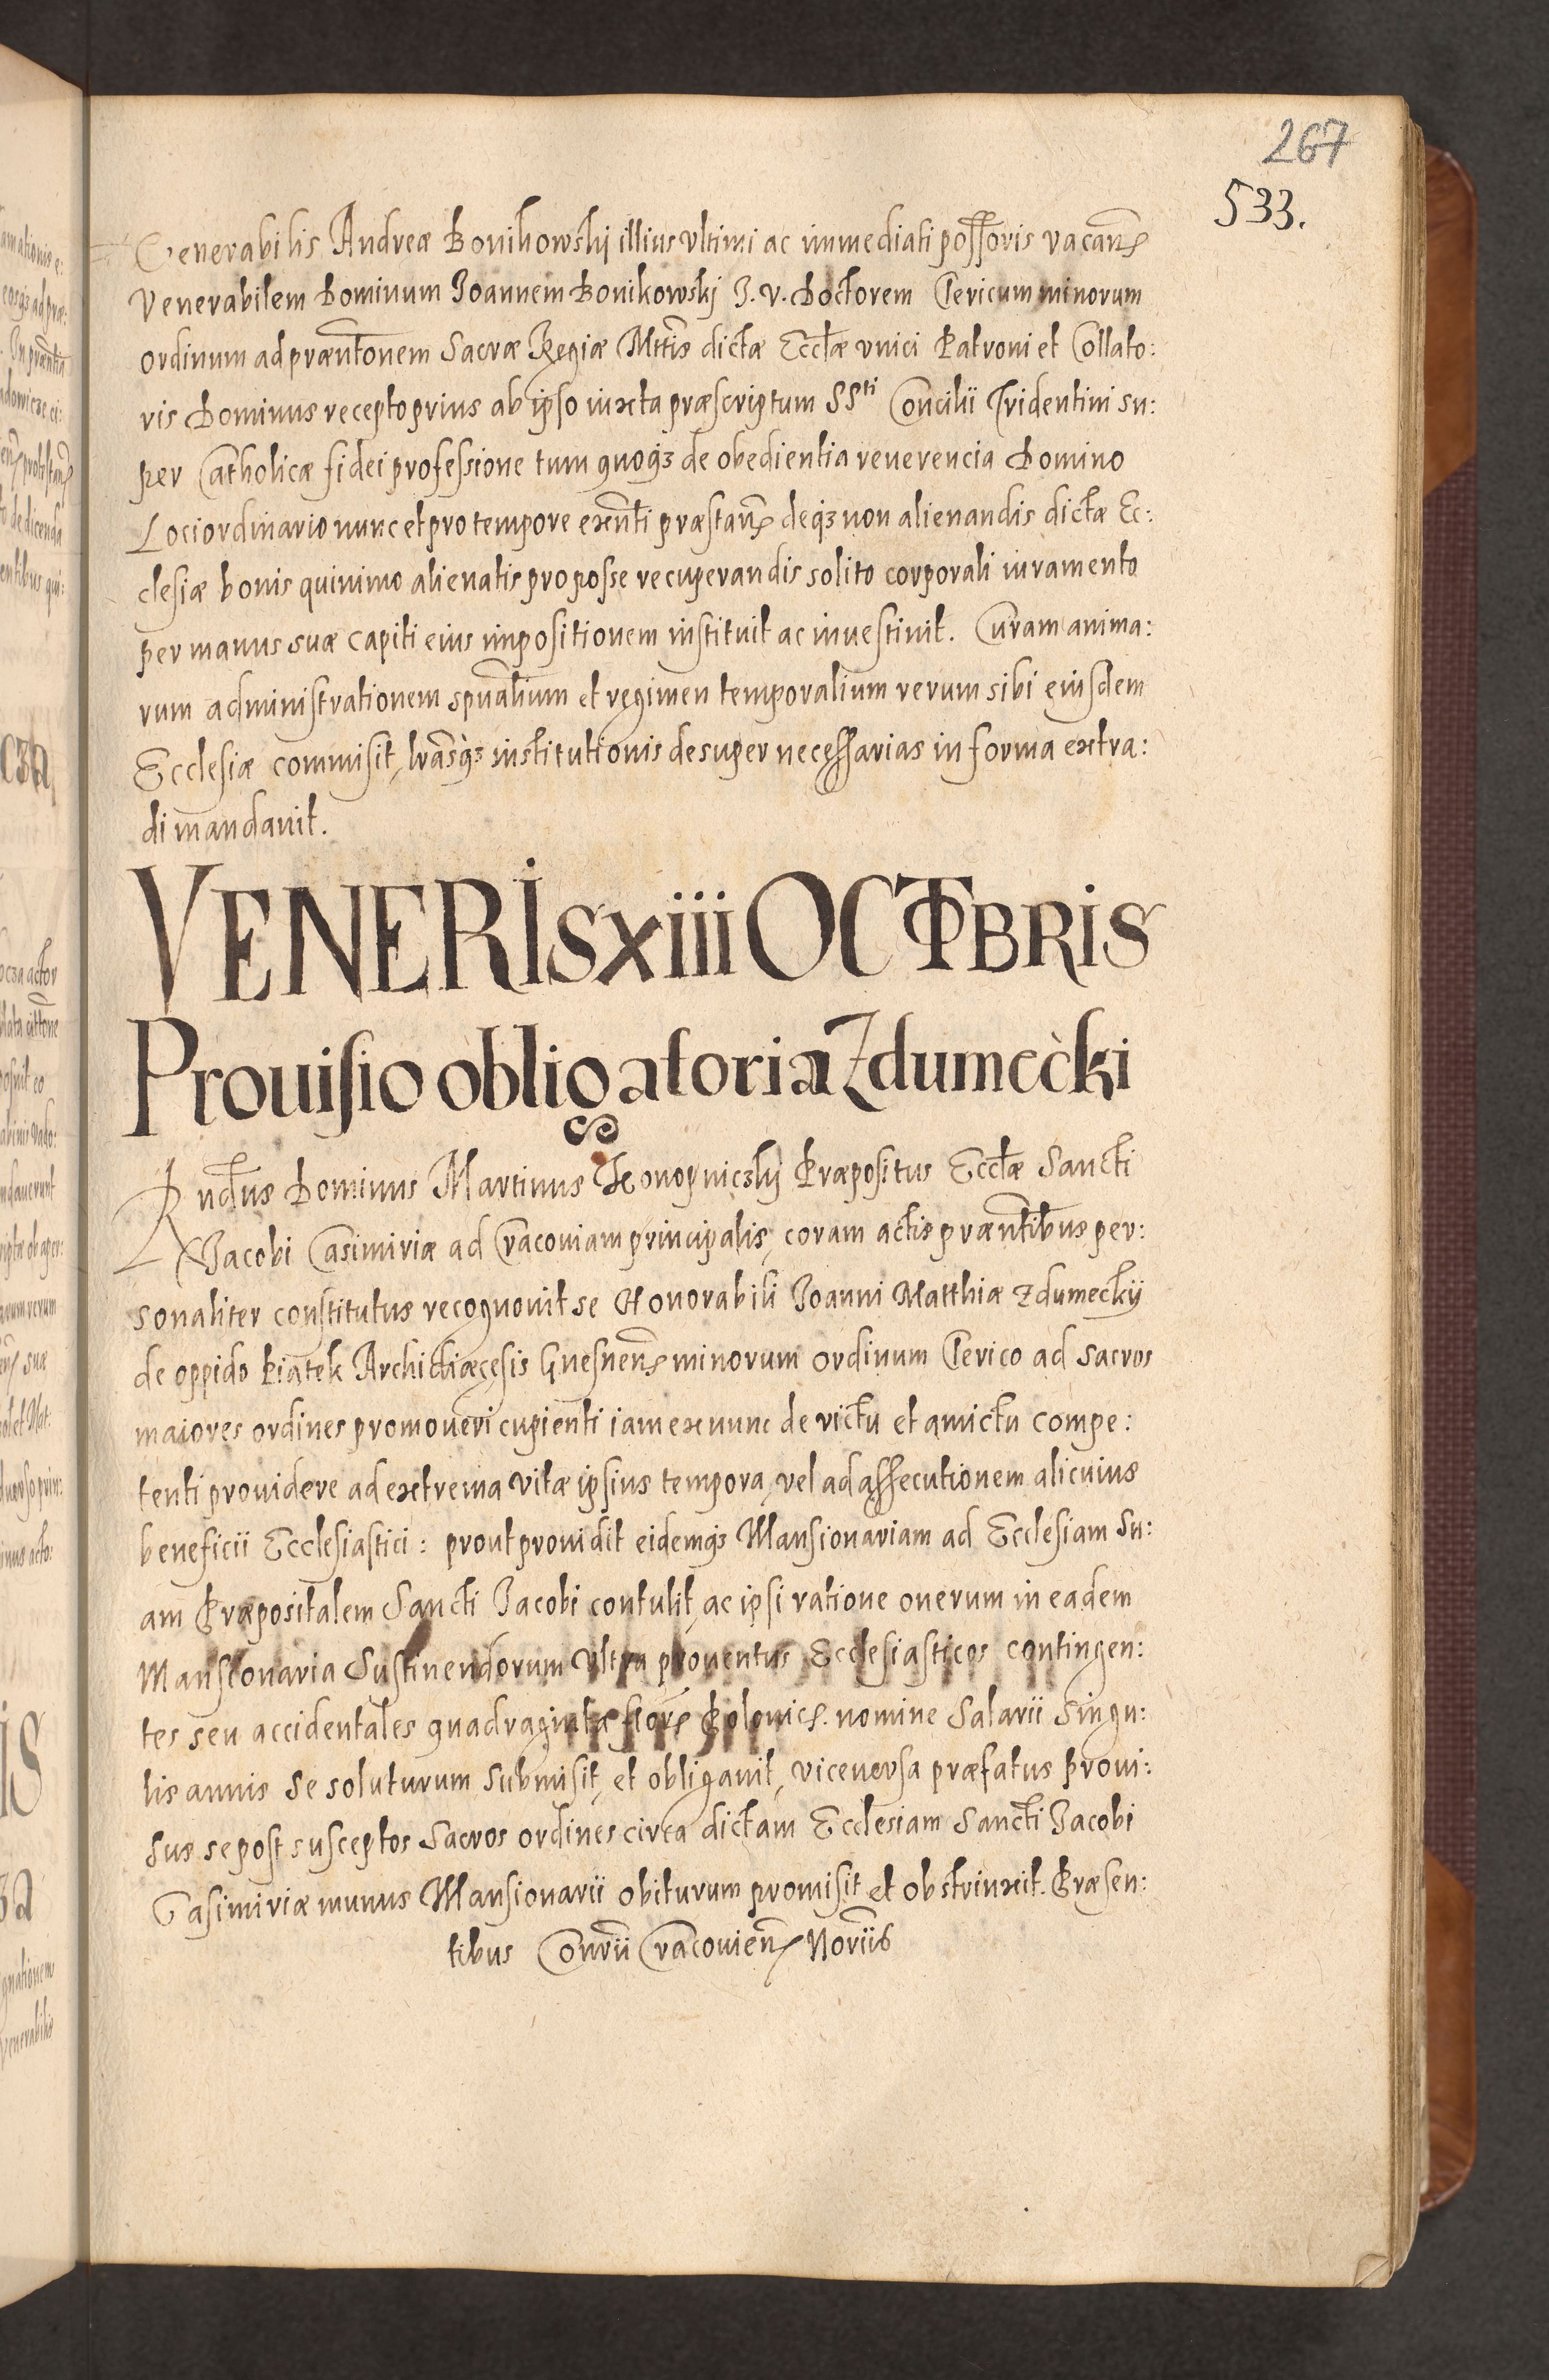 267
533.
Venerabilis Andreæ Bonikowskj illius vltimi ac immediati possoris vacanẽ
Venerabilem Dominum Joannem Bonikowskj J. V. Doctorem Clericum minorum
ordinum ad præntõnem Sacræ Regiæ Mttis dictæ Ecclæ vnici Patroni et Collato:
ris Dominus recepto prius ab ipso iuxta præscriptum SSti Concilii Tridentini su:
per Catholicæ fidei professione tum quoqз de obedientia reuerencia Domino
Loci ordinario nunc et pro tempore exñti præstanẽ deqз non alienandis dictæ Ec:
clesiæ bonis quinimo alienatis pro posse recuperandis solito corporali iuramento
per manus suæ capiti eius impositionem instituit ac inuestiuit. Curam anima:
rum administrationem spũalium et regimen temporalium rerum sibi eiusdem
Ecclesiæ commisit, lrãsqз institutionis desuper necessarias in forma extra:
di mandauit.
VENERIS XIII OCTOBRIS
Prouisio obligatoria Zdumecki
Rndus Dominus Martinus Konopniczkÿ Præpositus Ecclæ Sancti
Jacobi Casimiriæ ad Cracouiam principalis, coram actis præntibus per:
sonaliter constitutus recognouit se Honorabili Joanni Matthiæ Zdumeckÿ
de oppido Piątek Archidiæcęsis Gnesnenẽ minorum ordinum Clerico ad sacros
maiores ordines promoueri cupienti iam ex nunc de victu et amictu compe:
tenti prouidere ad extrema vitæ ipsius tempora, vel ad assecutionem alicuius
beneficii Ecclesiastici: prout prouidit eidemqз Mansionariam ad Ecclesiam su:
am Præpositalem Sancti Jacobi contulit, ac ipsi ratione onerum in eadem
Mansionaria Sustinendorum vltra prouentus Ecclesiasticos contingen:
tes seu accidentales quadraginta florẽ Polonicẽ. nomine Salarii Singu:
lis annis se soluturum submisit, et obligauit, viceuersa præfatus proui:
sus se post susceptos Sacros ordines circa dictam Ecclesiam Sancti Jacobi
Casimiriæ munus Mansionarii obiturum promisit et obstrinxit. Præsen:
tibus Consrii Cracouienẽ Noriis